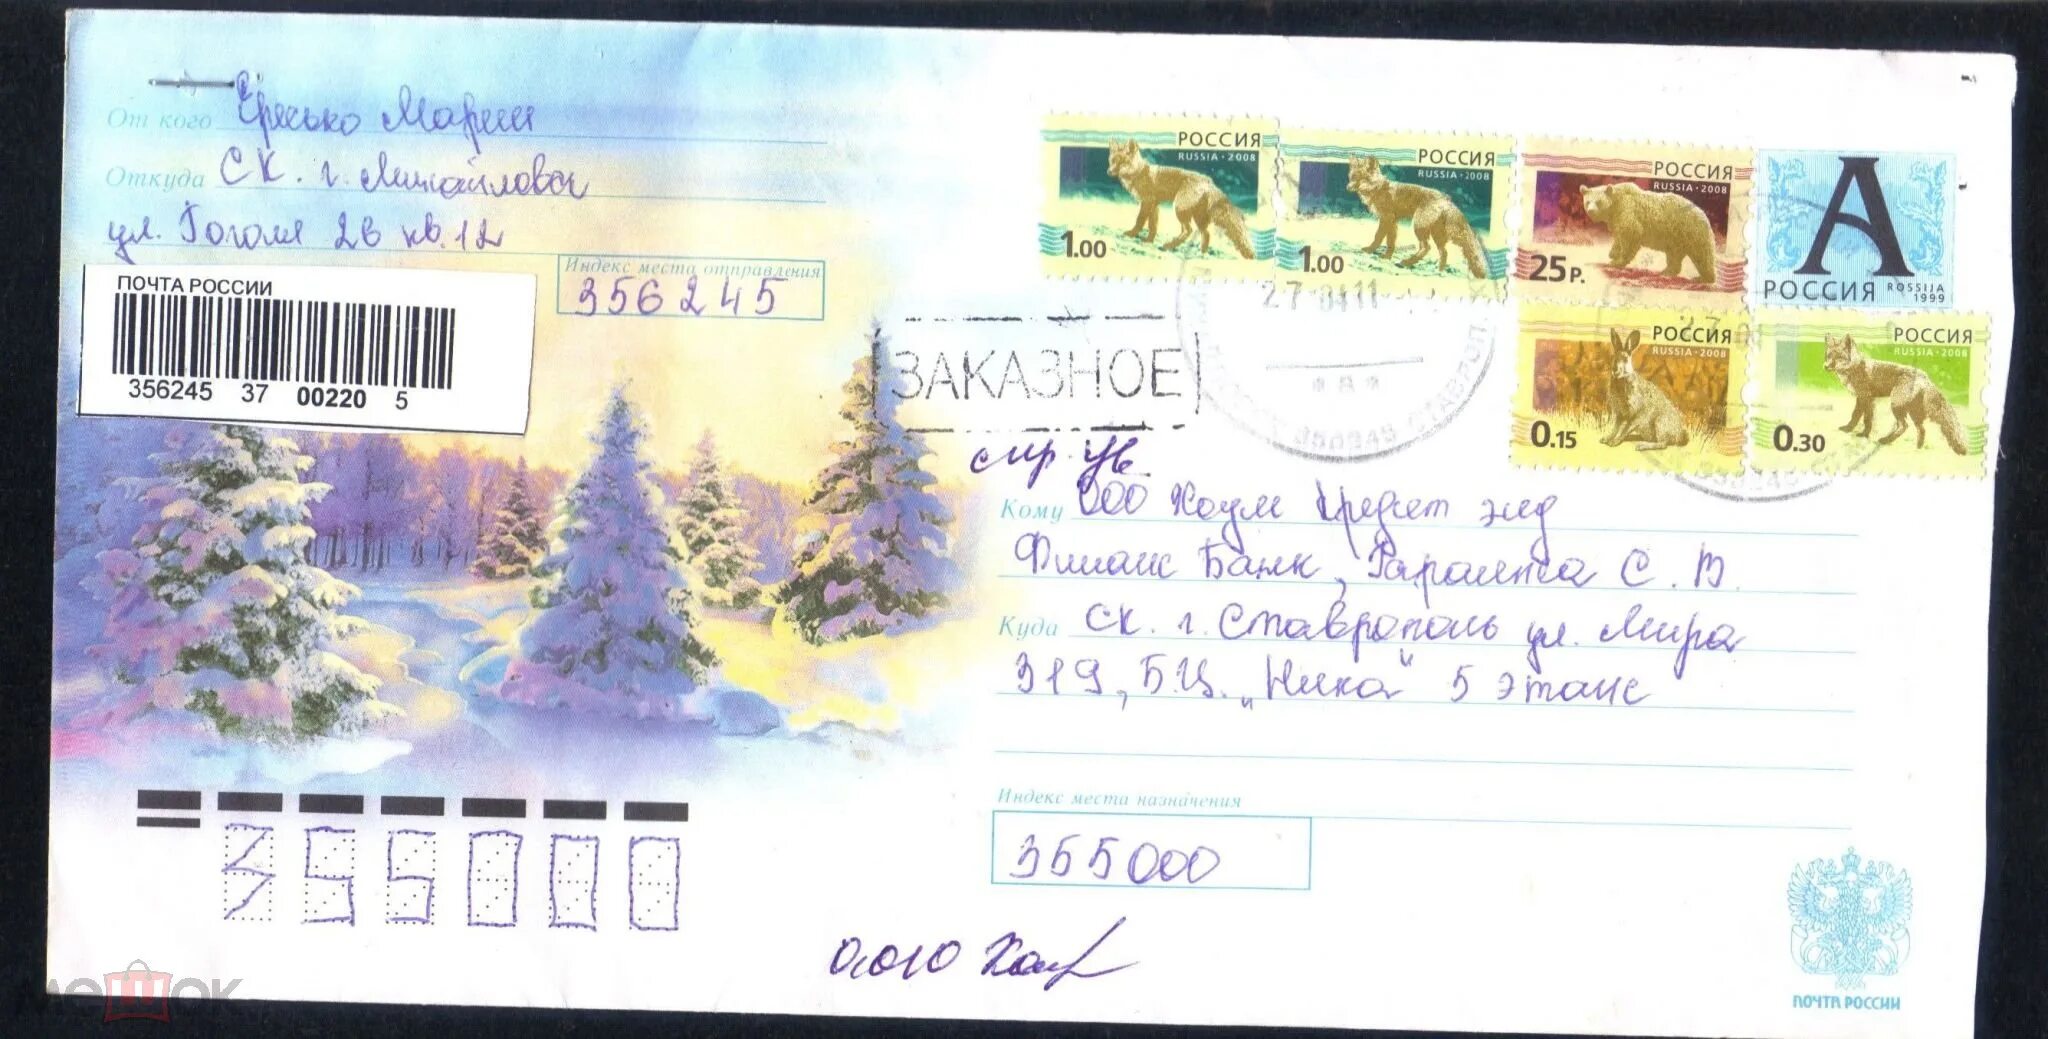 От кого Ересько Марии
Откуда СК. г. Михайловск
ул. Гоголя 2в кв. 12
Индекс места отправления
356245
ПОЧТА РОССИИ
356245 37 00220 5
РОССИЯ
RUSSIA · 2008
1.00
РОССИЯ
RUSSIA · 2008
1.00
РОССИЯ
RUSSIA · 2008
25 Р.
А
РОССИЯ ROSSIJA
1999
РОССИЯ
RUSSIA · 2008
0.15
РОССИЯ
RUSSIA · 2008
0.30
27 0411
ЗАКАЗНОЕ
Кому ООО Хоум Кредит энд
Финанс Банк, Гаранта С. В.
Куда СК. г. Ставрополь ул. Мира
319, Б.Ц. „Ника" 5 этаж
Индекс места назначения
355000
355000
0.010
ПОЧТА РОССИИ
мешок